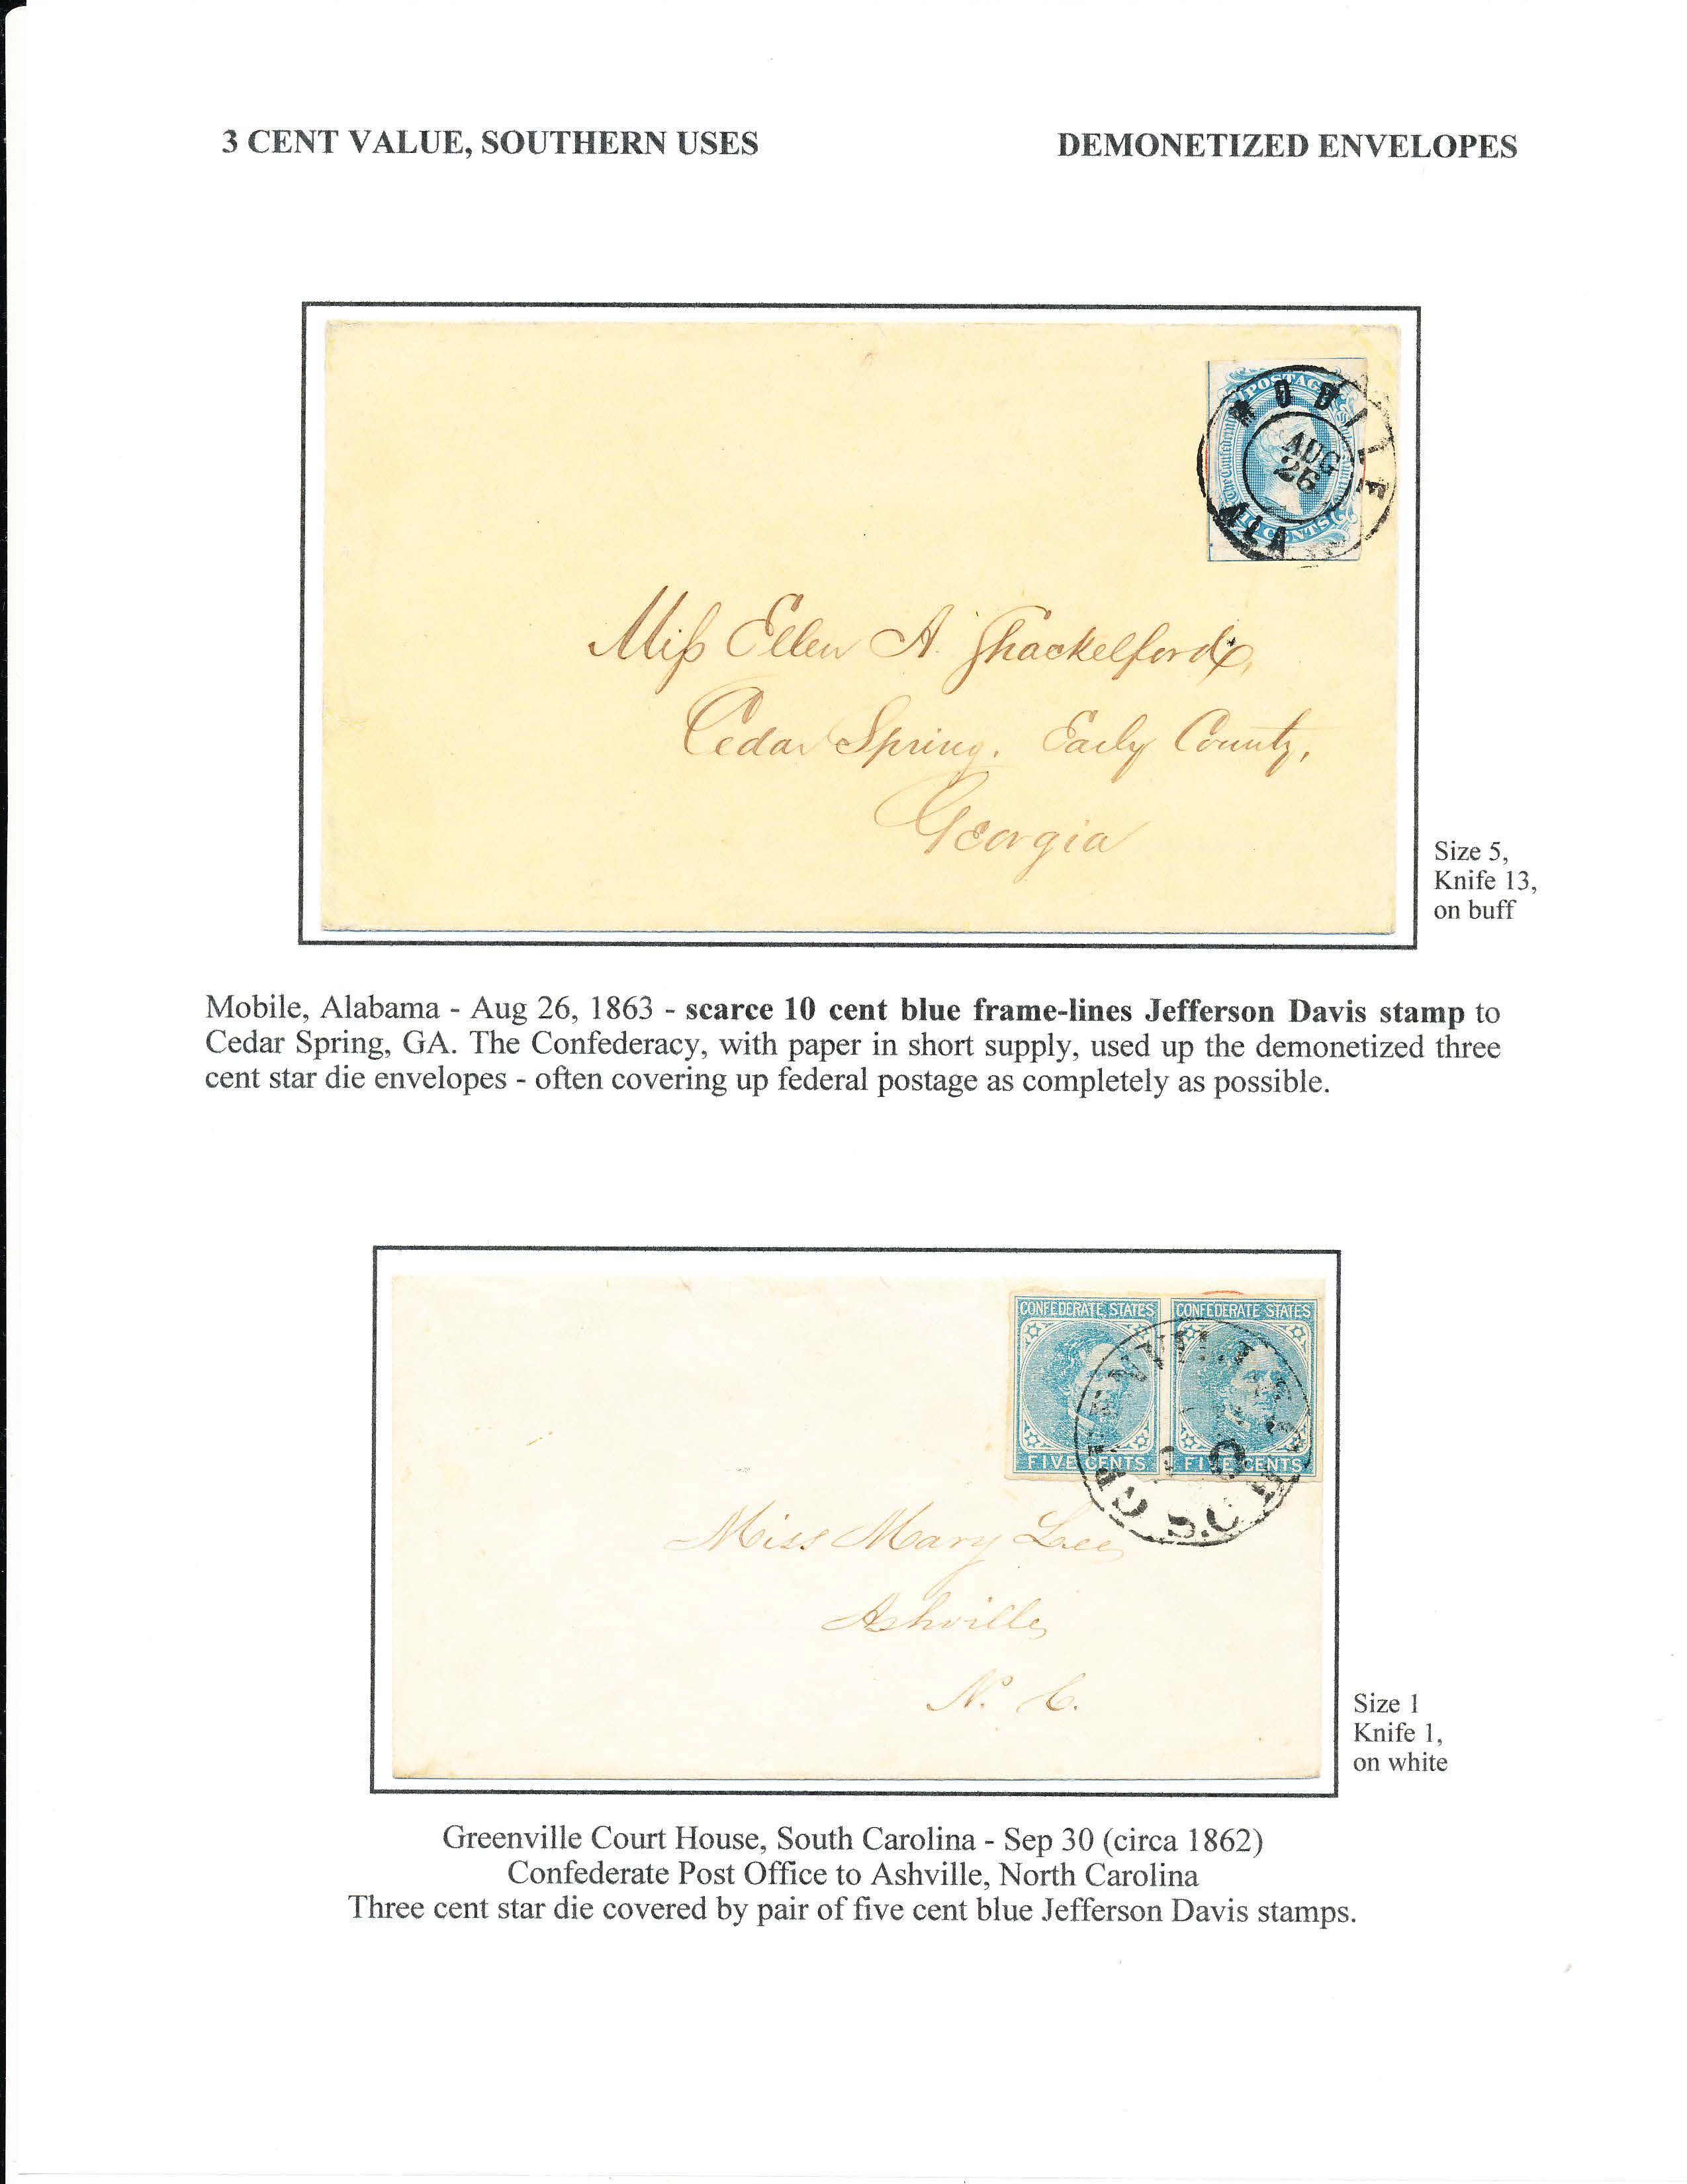 3 CENT VALUE, SOUTHERN USES
DEMONETIZED ENVELOPES
POSTAGE
The Confederate
CENTS
MOBILE
AUG
26
ALA
Miss Ellen A. Shackelford,
Cedar Spring. Early County,
Georgia
Size 5,
Knife 13,
on buff
Mobile, Alabama - Aug 26, 1863 - scarce 10 cent blue frame-lines Jefferson Davis stamp to
Cedar Spring, GA. The Confederacy, with paper in short supply, used up the demonetized three
cent star die envelopes - often covering up federal postage as completely as possible.
CONFEDERATE STATES
CONFEDERATE STATES
FIVE CENTS
FIVE CENTS
S.C
Miss Mary Lee
Ashville
N. C.
Size 1
Knife 1,
on white
Greenville Court House, South Carolina - Sep 30 (circa 1862)
Confederate Post Office to Ashville, North Carolina
Three cent star die covered by pair of five cent blue Jefferson Davis stamps.